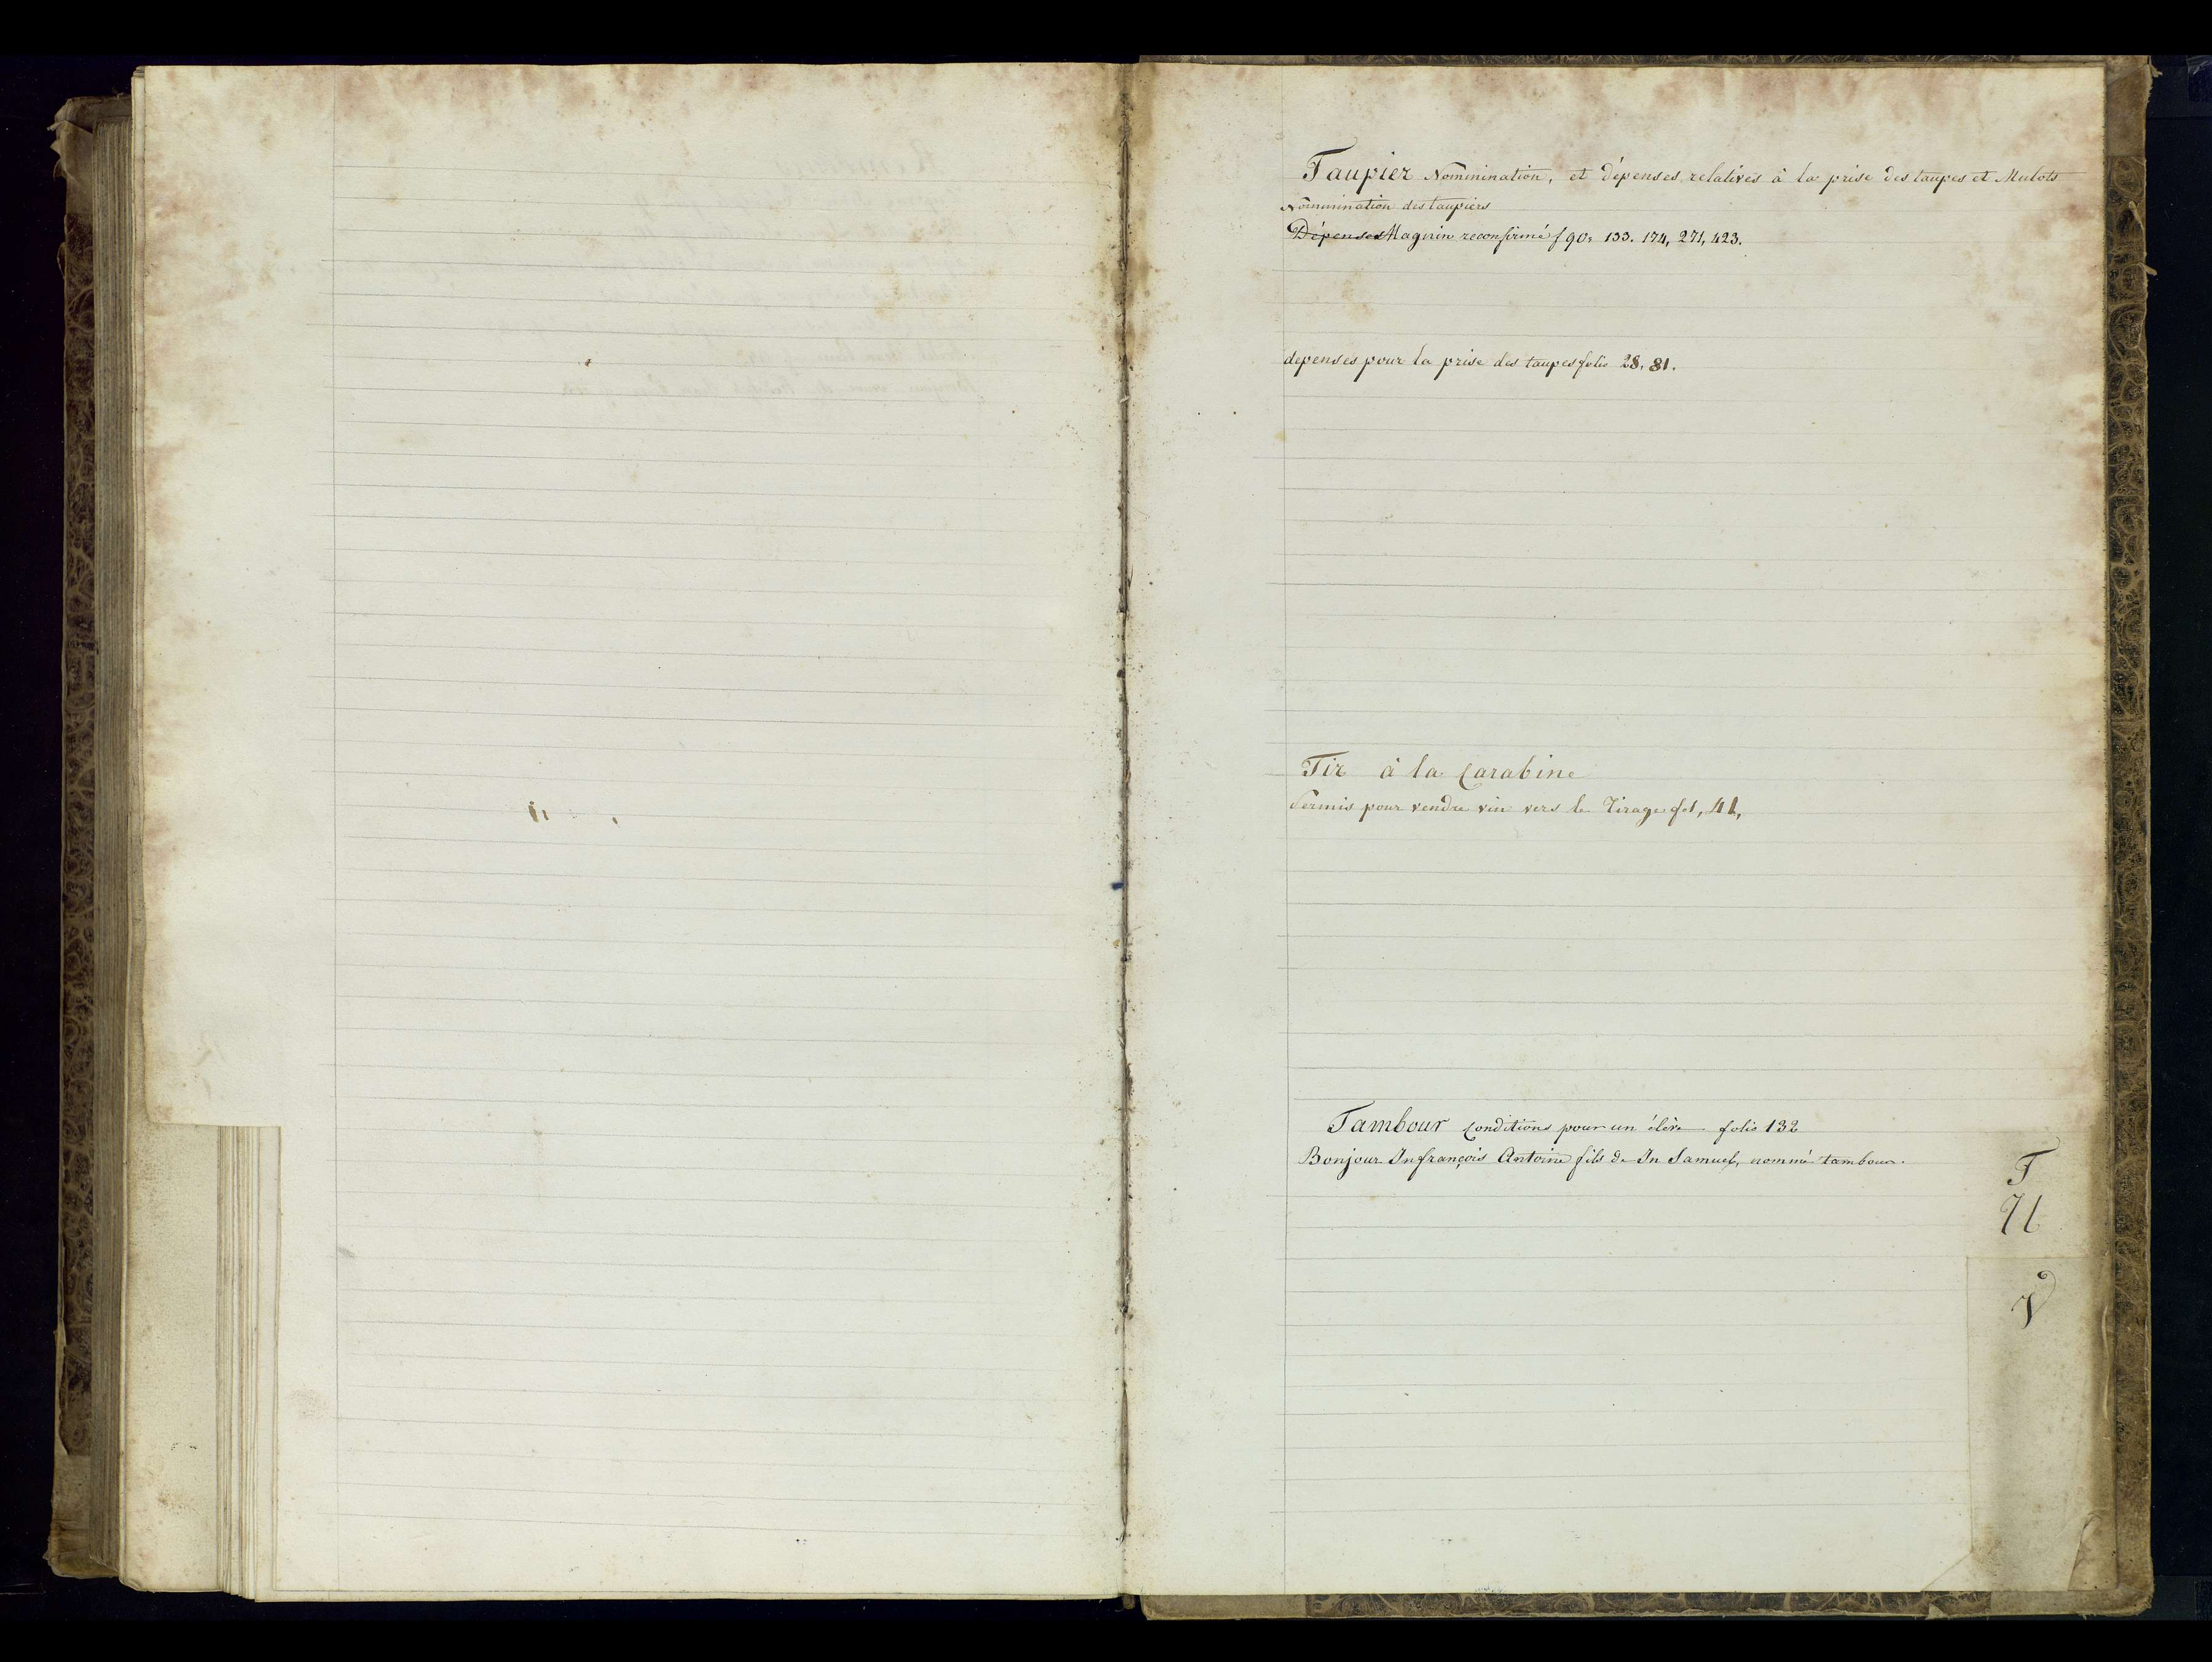 Taupier Nominination, et dépenses relatives à la prise des taupes et Mulots
Nominination des taupiers
Dépenses Magnin reconfirmé f 90, 133. 174, 271, 423.
depenses pour la prise des taupes folio 28, 81.
Tir à la Carabine
Permis pour vendre vin vers le Tirage fol, 41,
Tambour Conditions pour un élève folio 132
Bonjour Jn françois Antoine fils de Jn Samuel, nommé tambour.
T
V